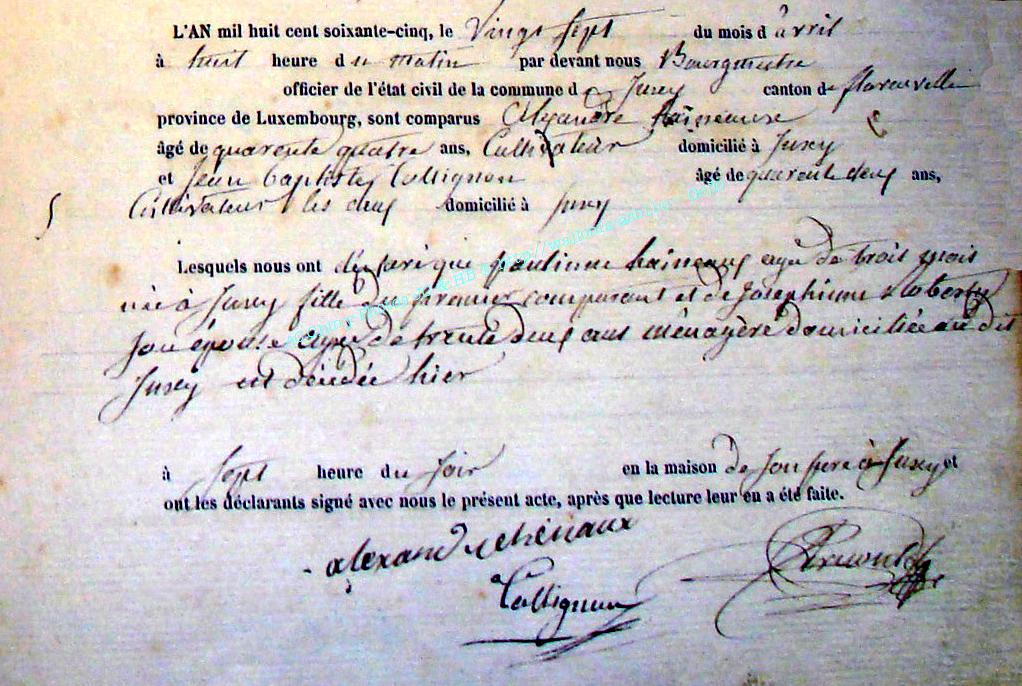 L'AN mil huit cent soixante-cinq, le Vingt sept du mois d'avril
à huit heure du matin par devant nous Bourgmestre
officier de l'état civil de la commune de Jusey canton de florenville
province de Luxembourg, sont comparus Alexandre haineaux
âgé de quarente quatre ans, Cultivateur domicilié à Jusey
et Jean baptiste Collignon âgé de quarente deux ans,
Cultivateur les deux domicilié à Jusey
Lesquels nous ont déclaré que paulinne haineaux agée de trois mois
née à Jusey fille du premier comparant et de Josephinne Roberty
son épouse agée de trente deux ans ménagère domiciliée au dit
Jusey est décédée hier
à sept heure du soir en la maison de son pere à Jusey et
ont les déclarants signé avec nous le présent acte, après que lecture leur en a été faite.
alexandre heniaux
Collignon